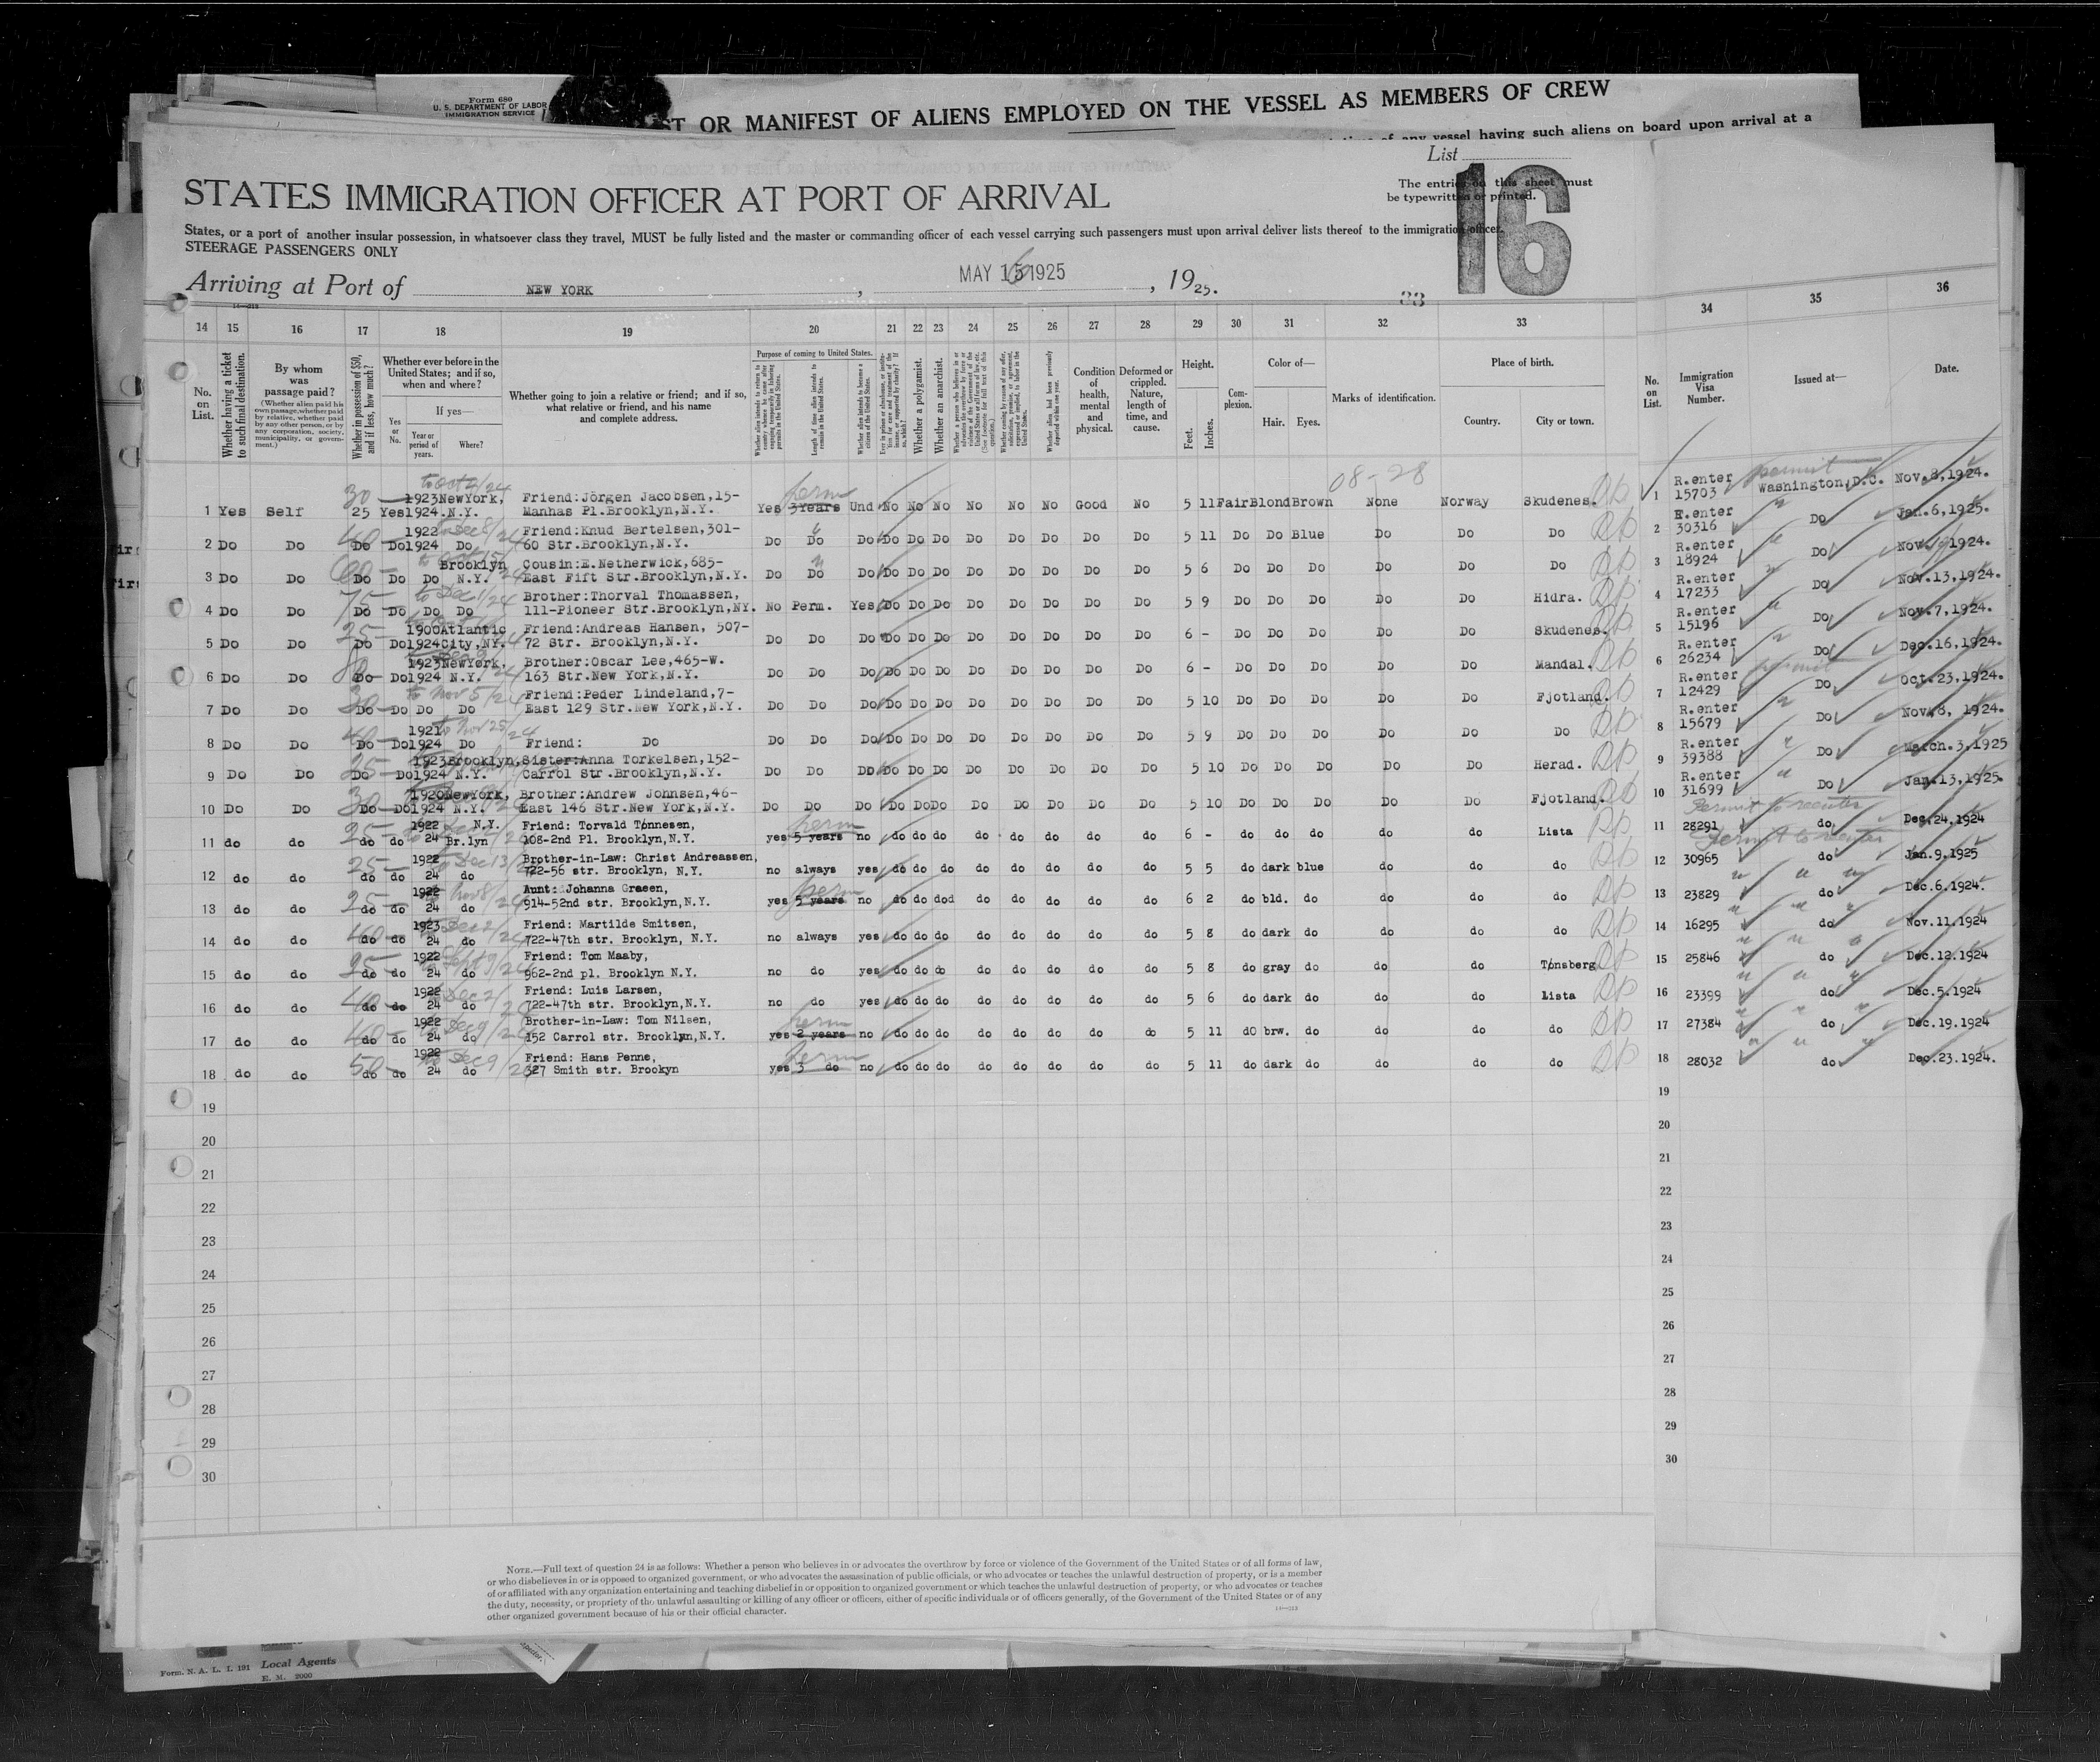 Form 680
U. S. DEPARTMENT OF LABOR
IMMIGRATION SERVICE
ST OR MANIFEST OF ALIENS EMPLOYED ON THE VESSEL AS MEMBERS OF CREW
of any vessel having such aliens on board upon arrival at a
List
16
STATES IMMIGRATION OFFICER AT PORT OF ARRIVAL
The entries on this sheet must
be typewritten or printed.
States, or a port of another insular possession, in whatsoever class they travel, MUST be fully listed and the master or commanding officer of each vessel carrying such passengers must upon arrival deliver lists thereof to the immigration officer.
STEERAGE PASSENGERS ONLY
Arriving at Port of NEW YORK, MAY 15 1925, 1925.
14 15 16 17 18 19 20 21 22 23 24 25 26 27 28 29 30 31 32 33 34 35 36
No. on List.
Whether having a ticket to such final destination.
By whom was passage paid?
(Whether alien paid his own passage, whether paid by relative, whether paid by any other person, or by any corporation, society, municipality, or government.)
Whether in possession of $50, and if less, how much?
Whether ever before in the United States; and if so, when and where?
Yes or No.
If yes—
Year or period of years.
Where?
Whether going to join a relative or friend; and if so, what relative or friend, and his name and complete address.
Purpose of coming to United States.
Length of time alien intends to remain in the United States.
Whether alien intends to become a citizen of the United States.
Whether a polygamist.
Whether an anarchist.
Condition of health, mental and physical.
Deformed or crippled. Nature, length of time, and cause.
Height.
Feet.
Inches.
Complexion.
Color of—
Hair.
Eyes.
Marks of identification.
Place of birth.
Country.
City or town.
No. on List.
Immigration Visa Number.
Issued at—
Date.
08-28
1 Yes Self 30 25 Yes 1923 1924 NewYork, N.Y. Friend:Jörgen Jacobsen,15- Manhas Pl.Brooklyn,N.Y. Yes perm 3Years Und No No No No No No Good No 5 11 Fair Blond Brown None Norway Skudenes. 1 R.enter 15703 permit Washington,D.C. Nov.8,1924.
2 Do Do 40 Do Do 1922 1924 Do Friend:Knud Bertelsen,301- 60 Str.Brooklyn,N.Y. Do Do Do Do Do Do Do Do Do Do Do 5 11 Do Do Blue Do Do Do 2 R.enter 30316 Do Jan.6,1925.
3 Do Do 60 Do Do Do Brooklyn N.Y. Cousin:E.Netherwick,685- East Fift Str.Brooklyn,N.Y. Do Do Do Do Do Do Do Do Do Do Do 5 6 Do Do Do Do Do Do 3 R.enter 18924 Do
4 Do Do 75 Do Do Do Do Brother:Thorval Thomassen, 111-Pioneer Str.Brooklyn,NY. No Perm. Yes Do Do Do Do Do Do Do Do 5 9 Do Do Do Do Do Hidra. 4 R.enter 17233 Do Nov.13,1924.
5 Do Do 25 Do Do 1900 1924 Atlantic City,NY. Friend:Andreas Hansen, 507- 72 Str. Brooklyn,N.Y. Do Do Do Do Do Do Do Do Do Do Do 6 - Do Do Do Do Do Skudenes. 5 R.enter 15196 Do Nov.7,1924.
6 Do Do Do Do 1923 1924 NewYork, N.Y. Brother:Oscar Lee,465-W. 163 Str.New York,N.Y. Do Do Do Do Do Do Do Do Do Do Do 6 - Do Do Do Do Do Mandal. 6 R.enter 26234 Do Dec.16,1924.
7 Do Do 30 Do Do Do Do Friend:Peder Lindeland,7- East 129 Str.New York,N.Y. Do Do Do Do Do Do Do Do Do Do Do 5 10 Do Do Do Do Do Fjotland. 7 R.enter 12429 permit Do Oct.23,1924.
8 Do Do 40 Do Do 1921 1924 Do Friend: Do Do Do Do Do Do Do Do Do Do Do Do 5 9 Do Do Do Do Do Do 8 R.enter 15679 Do Nov.8, 1924.
9 Do Do 25 Do Do 1923 1924 Brooklyn, N.Y. Sister:Anna Torkelsen,152- Carrol Str.Brooklyn,N.Y. Do Do Do Do Do Do Do Do Do Do Do 5 10 Do Do Do Do Do Herad. 9 R.enter 39388 Do March.3,1925
10 Do Do 30 Do Do 1920 1924 NewYork, N.Y. Brother:Andrew Johnsen,46- East 146 Str.New York,N.Y. Do Do Do Do Do Do Do Do Do Do Do 5 10 Do Do Do Do Do Fjotland. 10 R.enter 31699 Do Jan.13,1925.
11 do do 25 do do 1922 24 N.Y. Br.lyn Friend: Torvald Tønnesen, 108-2nd Pl. Brooklyn,N.Y. yes perm 5 years no do do do do do do do do 6 - do do do do do Lista 11 28291 Permit to reenter do Dec.24.1924
12 do do 25 do do 1922 24 do Brother-in-Law: Christ Andreassen, 722-56 str. Brooklyn, N.Y. no always yes do do do do do do do do 5 5 do dark blue do do do 12 30965 Permit to reenter do Jan.9.1925
13 do do 25 do do 1922 24 do Aunt: Johanna Graeen, 914-52nd str. Brooklyn,N.Y. yes perm 5 years no do do dod do do do do do 6 2 do bld. do do do do 13 23829 do Dec.6.1924.
14 do do 40 do do 1923 24 do Friend: Martilde Smitsen, 722-47th str. Brooklyn, N.Y. no always yes do do do do do do do do 5 8 do dark do do do do 14 16295 do Nov.11.1924
15 do do 25 do do 1922 24 do Friend: Tom Maaby, 962-2nd pl. Brooklyn N.Y. no do yes do do do do do do do do 5 8 do gray do do do Tønsberg 15 25846 do Dec.12.1924
16 do do 40 do do 1922 24 do Friend: Luis Larsen, 722-47th str. Brooklyn,N.Y. no do yes do do do do do do do do 5 6 do dark do do do Lista 16 23399 do Dec.5.1924
17 do do 40 do do 1922 24 do Brother-in-Law: Tom Nilsen, 152 Carrol str. Brooklyn,N.Y. yes perm 2 years no do do do do do do do do 5 11 dO brw. do do do do 17 27384 do Dec.19.1924
18 do do 50 do do 1922 24 do Friend: Hans Penne, 327 Smith str. Brookyn yes perm 3 do no do do do do do do do do 5 11 do dark do do do do 18 28032 do Dec.23.1924.
19 19
20 20
21 21
22 22
23 23
24 24
25 25
26 26
27 27
28 28
29 29
30 30
NOTE.—Full text of question 24 is as follows: Whether a person who believes in or advocates the overthrow by force or violence of the Government of the United States or of all forms of law,
or who disbelieves in or is opposed to organized government, or who advocates the assassination of public officials, or who advocates or teaches the unlawful destruction of property, or is a member
of or affiliated with any organization entertaining and teaching disbelief in or opposition to organized government or which teaches the unlawful destruction of property, or who advocates or teaches
the duty, necessity, or propriety of the unlawful assaulting or killing of any officer or officers, either of specific individuals or of officers generally, of the Government of the United States or of any
other organized government because of his or their official character.
Form. N. A. L. I. 191 Local Agents
E. M. 2000